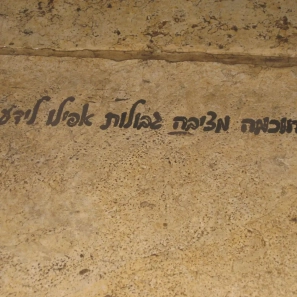 החכמה מציבה גבולות אפילו לידע